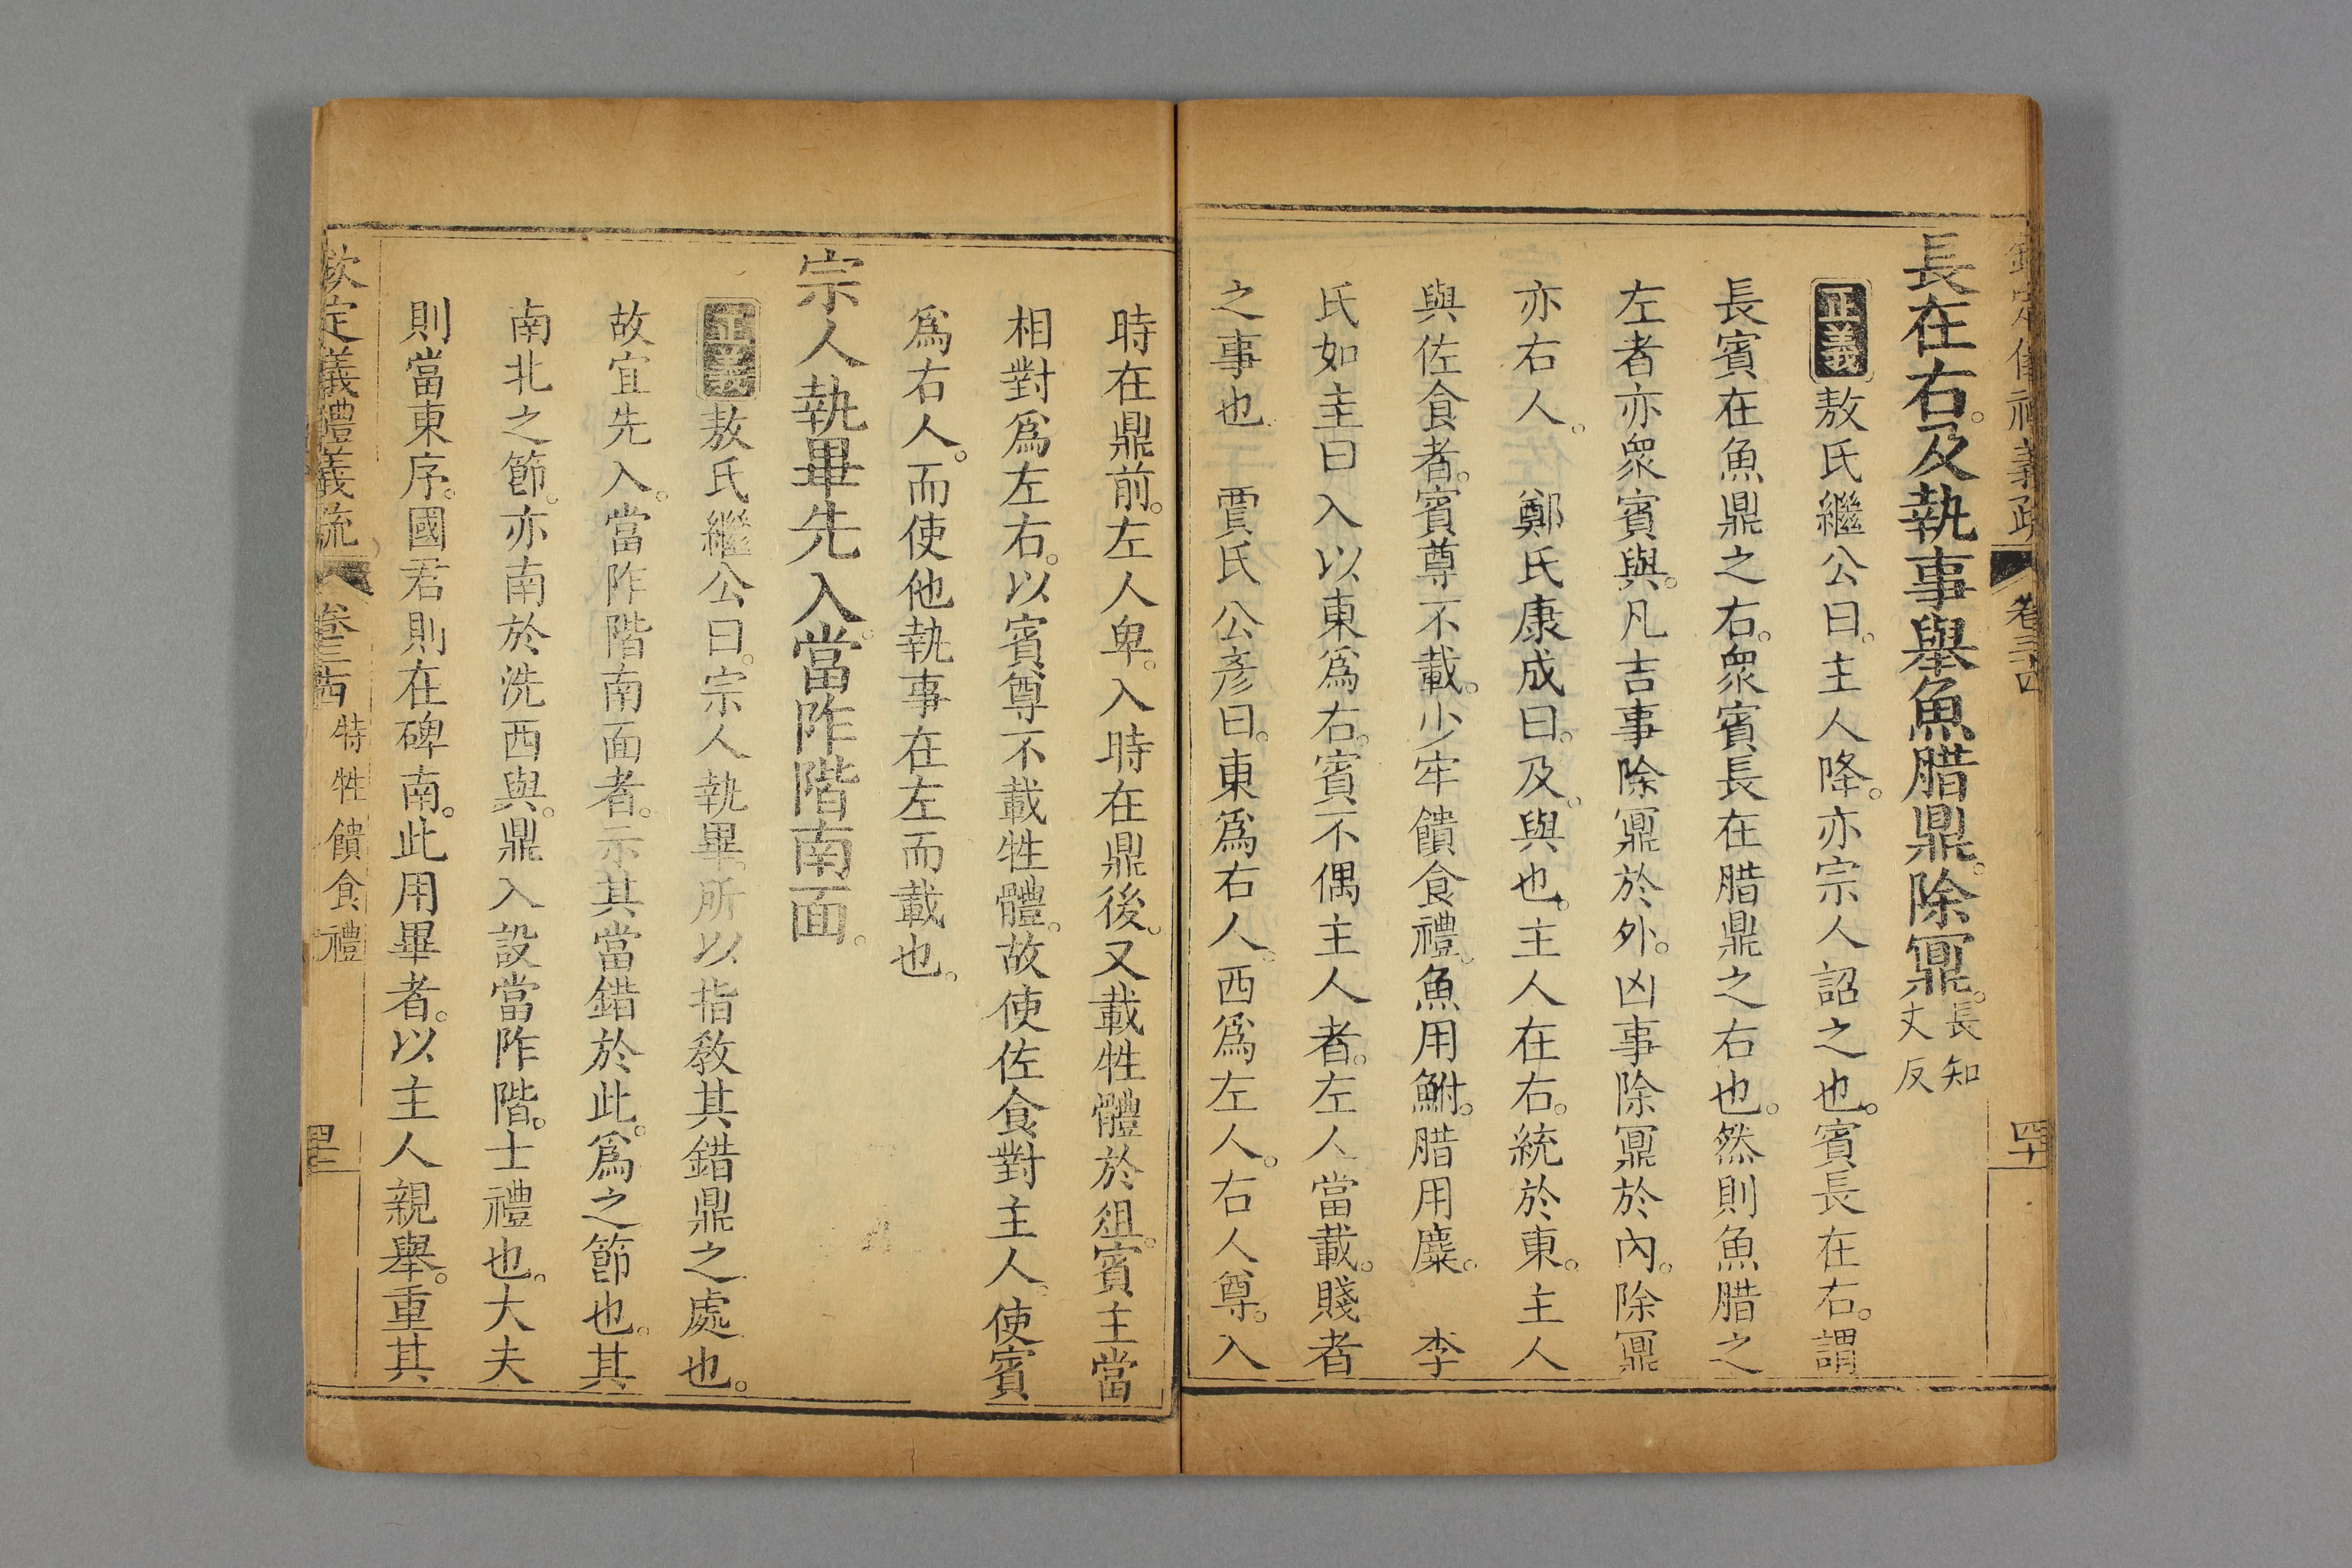 欽定儀禮義疏 卷三十四 四十
長在右。及執事舉魚腊鼎。除鼏。長知丈反
正義 敖氏繼公曰。主人降。亦宗人詔之也。賓長在右。謂
長賓在魚鼎之右。衆賓長在腊鼎之右也。然則魚腊之
左者亦衆賓與。凡吉事除鼏於外。凶事除鼏於內。除鼏
亦右人。 鄭氏康成曰。及。與也。主人在右。統於東。主人
與佐食者。賓尊不載。少牢饋食禮。魚用鮒。腊用麋。 李
氏如圭曰入以東爲右。賓不偶主人者。左人當載。賤者
之事也 賈氏公彥曰。東爲右人。西爲左人。右人尊。入
時在鼎前。左人卑。入時在鼎後。又載牲體於俎。賓主當
相對爲左右。以賓尊不載牲體。故使佐食對主人。使賓
爲右人。而使他執事在左而載也。
宗人執畢先入。當阼階南面。
正義 敖氏繼公曰。宗人執畢。所以指教其錯鼎之處也。
故宜先入。當阼階南面者。示其當錯於此。爲之節也。其
南北之節。亦南於洗西與。鼎入設當阼階。士禮也。大夫
則當東序。國君則在碑南。此用畢者。以主人親舉。重其
欽定義禮義疏 卷三十四 特牲饋食禮